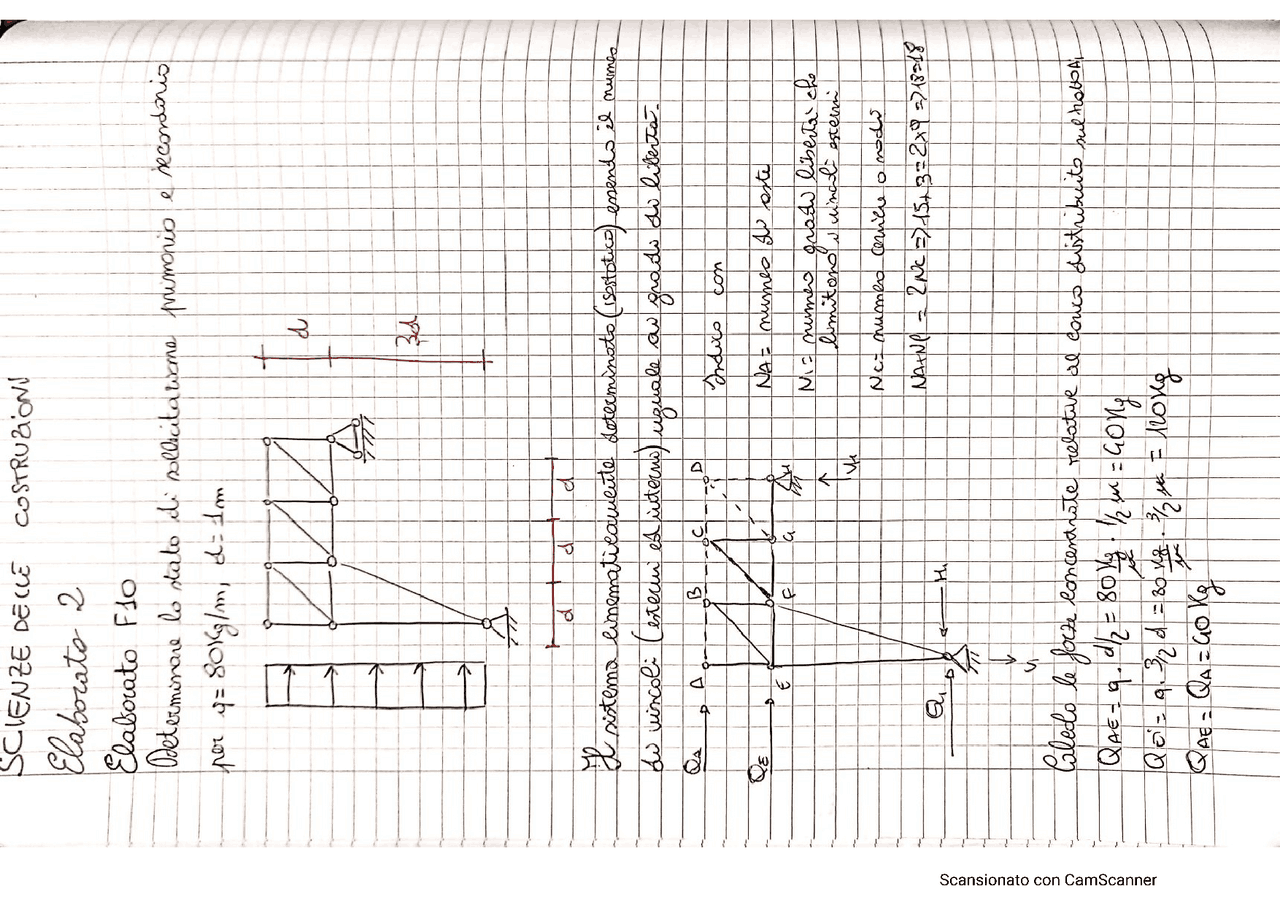 SCIENZE DELLE COSTRUZIONI
Elaborato 2
Elaborato F10
Determinare lo stato di sollecitazione primario e secondario
per q = 80 Kg/m, d = 1m
d
3d
d d d
Il sistema cinematicamente determinato (isostatico) essendo il numero
di vincoli (esterni ed interni) uguale ai gradi di libertà.
QA A B C D
Indico con
QE E F G H
NA = numero di aste
VH
Ni = numero gradi libertà che
limitano i vincoli esterni
Nc = numero cerniere o nodi
QI HI
NA+Ni = 2Nc => 15+3 = 2x9 => 18=18
VI
Calcolo le forze concentrate relative al carico distribuito
QAE = q · d/2 = 80 Kg/m · 1/2 m = 40 Kg
q · 3/2 d = 80 Kg/m · 3/2 m = 120 Kg
QAE = QA = 40 Kg
Scansionato con CamScanner